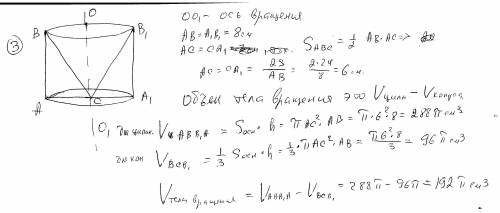 ③
O
B
B₁
A
C
A₁
O₁
OO₁ - ось вращения
AB = A₁B₁ = 8 см
AC = CA₁
S_ABC = 1/2 AB·AC =>
AC = CA₁ = 2S/AB = 2·24/8 = 6 см.
Объем тела вращения это Vцилин - Vконуса
для цилин. V_ABB₁A₁ = Sосн·h = πAC²·AB = π·6²·8 = 288π см³
для кон V_BCB₁ = 1/3 Sосн·h = 1/3·πAC²·AB = π6²·8/3 = 96π см³
Vтела вращения = V_ABB₁A₁ - V_BCB₁ = 288π - 96π = 192π см³